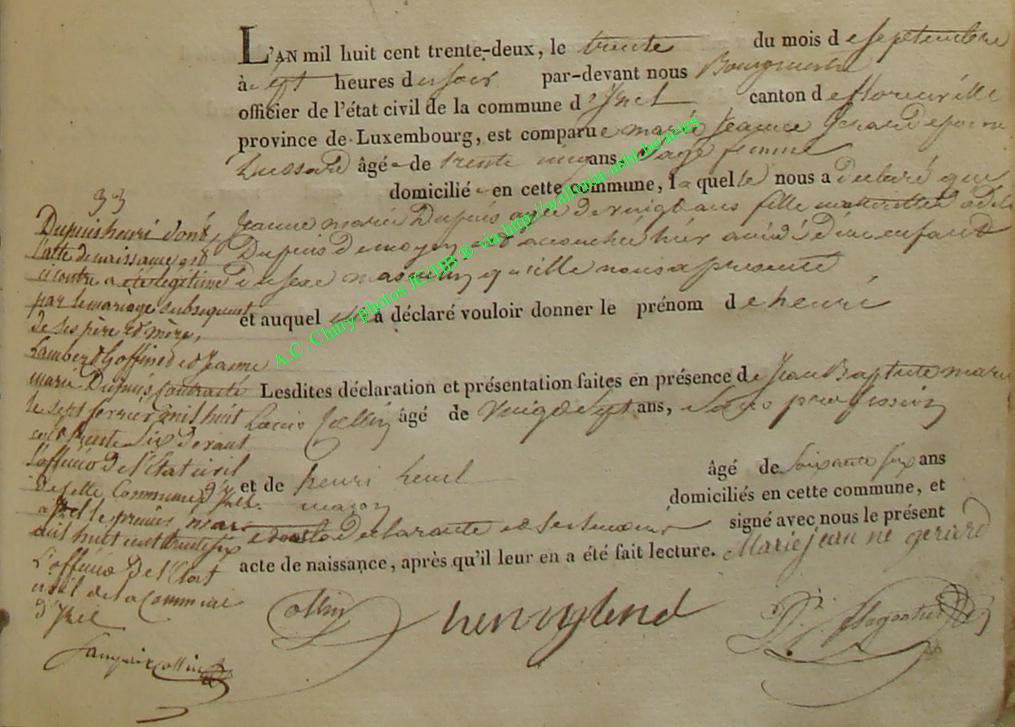 L'AN mil huit cent trente-deux, le trente du mois de Septembre
à Sept heures du soir par-devant nous Bourgmestre
officier de l'état civil de la commune d'Izel canton de florenville
province de Luxembourg, est comparue marie Jeanne Gerard epouse
âgée de trente ans, Sage femme
domiciliée en cette commune, laquelle nous a declaré que
Jeanne marie Dupuis agée de vingt ans fille
Dupuis est accouchée hier a midi d'un enfant
du sexe masculin qu'elle nous a presenté
et auquel elle a déclaré vouloir donner le prénom de henri
Lesdites déclaration et présentation faites en présence de Jean Baptiste marie
Louis Collin âgé de vingt Sept ans, Sans profession
et de henri âgé de Soixante six ans
maçon domiciliés en cette commune, et
declarante et les temoins signé avec nous le présent
acte de naissance, après qu'il leur en a été fait lecture.
Marie jean ne gerard
Collin
33
Dupuis henri dont
l'acte de naissance est
ci contre a été légitimé
par le mariage subsequent
de ses père et mère,
Lambert Goffinet et Jeanne
marie Dupuis, contracté
le sept fevrier mil huit
cent trente Six devant
l'officier de l'Etat civil
de cette Commune d'Izel.
a Izel le premier mars
mil huit cent trente six
L'officier de l'Etat
civil de la Commune
d'Izel
Collin
A.C. Chiny photos JLTHB ® via http://wallonia-asbl.be/actes